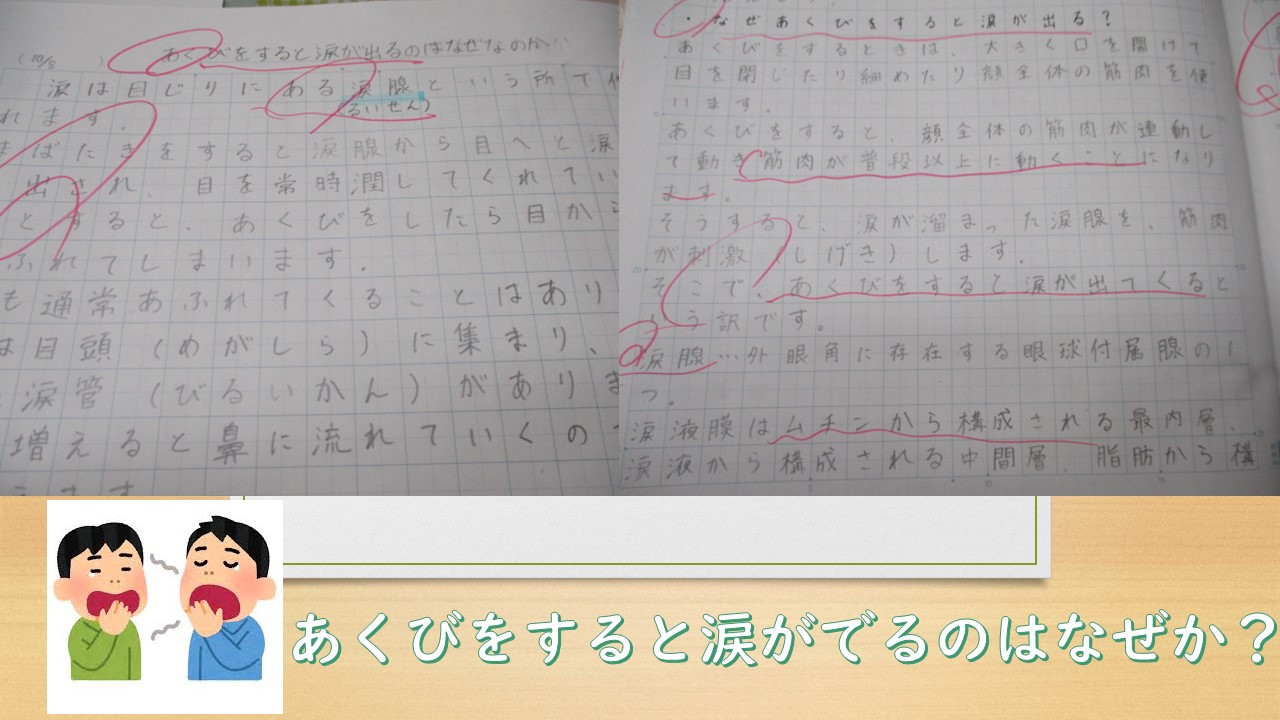 (10/5 )
あくびをすると涙が出るのはなぜなのか
涙は目じりにある涙腺という所で
(るいせん)
れます.
まばたきをすると涙腺から目へと涙
出され、目を常時潤してくれてい
とすると、あくびをしたら目から
ふれてしまいます.
も通常あふれてくることはあり
は目頭(めがしら)に集まり、
涙管(びるいかん)があります
増えると鼻に流れていくの
・なぜあくびをすると涙が出る?
あくびをするときは、大きく口を開けて
目を閉じたり細めたり顔全体の筋肉を使
います.
あくびをすると、顔全体の筋肉が連動し
て動き筋肉が普段以上に動くことになり
ます.
そうすると、涙が溜まった涙腺を、筋肉
が刺激(しげき)します.
そこで、あくびをすると涙が出てくると
いう訳です。
涙腺…外眼角に存在する眼球付属腺の1
つ.
涙液膜はムチンから構成される最内層、
涙液から構成される中間層、脂肪から構
あくびをすると涙がでるのはなぜか？